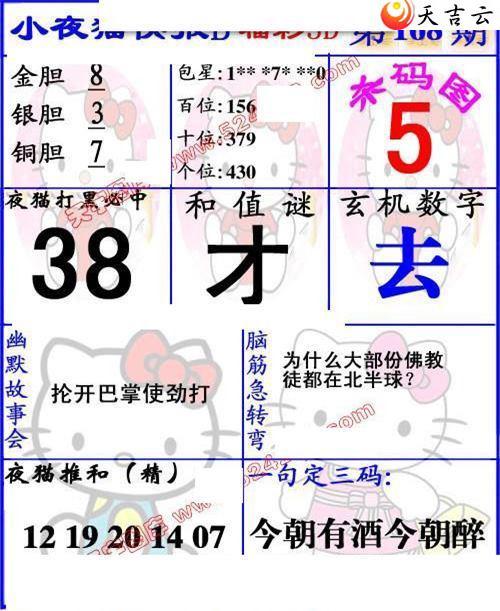 天吉云
小夜猫快报D 福彩3D 第108期
金胆 8
银胆 3
铜胆 7
包星:1** *7* **0
百位:156
十位:379
个位:430
杀码图
5
夜猫打黑必中
38
和值谜
才
玄机数字
去
幽默故事会
抡开巴掌使劲打
脑筋急转弯
为什么大部份佛教
徒都在北半球?
夜猫推和(精)
12 19 20 14 07
一句定三码:
今朝有酒今朝醉